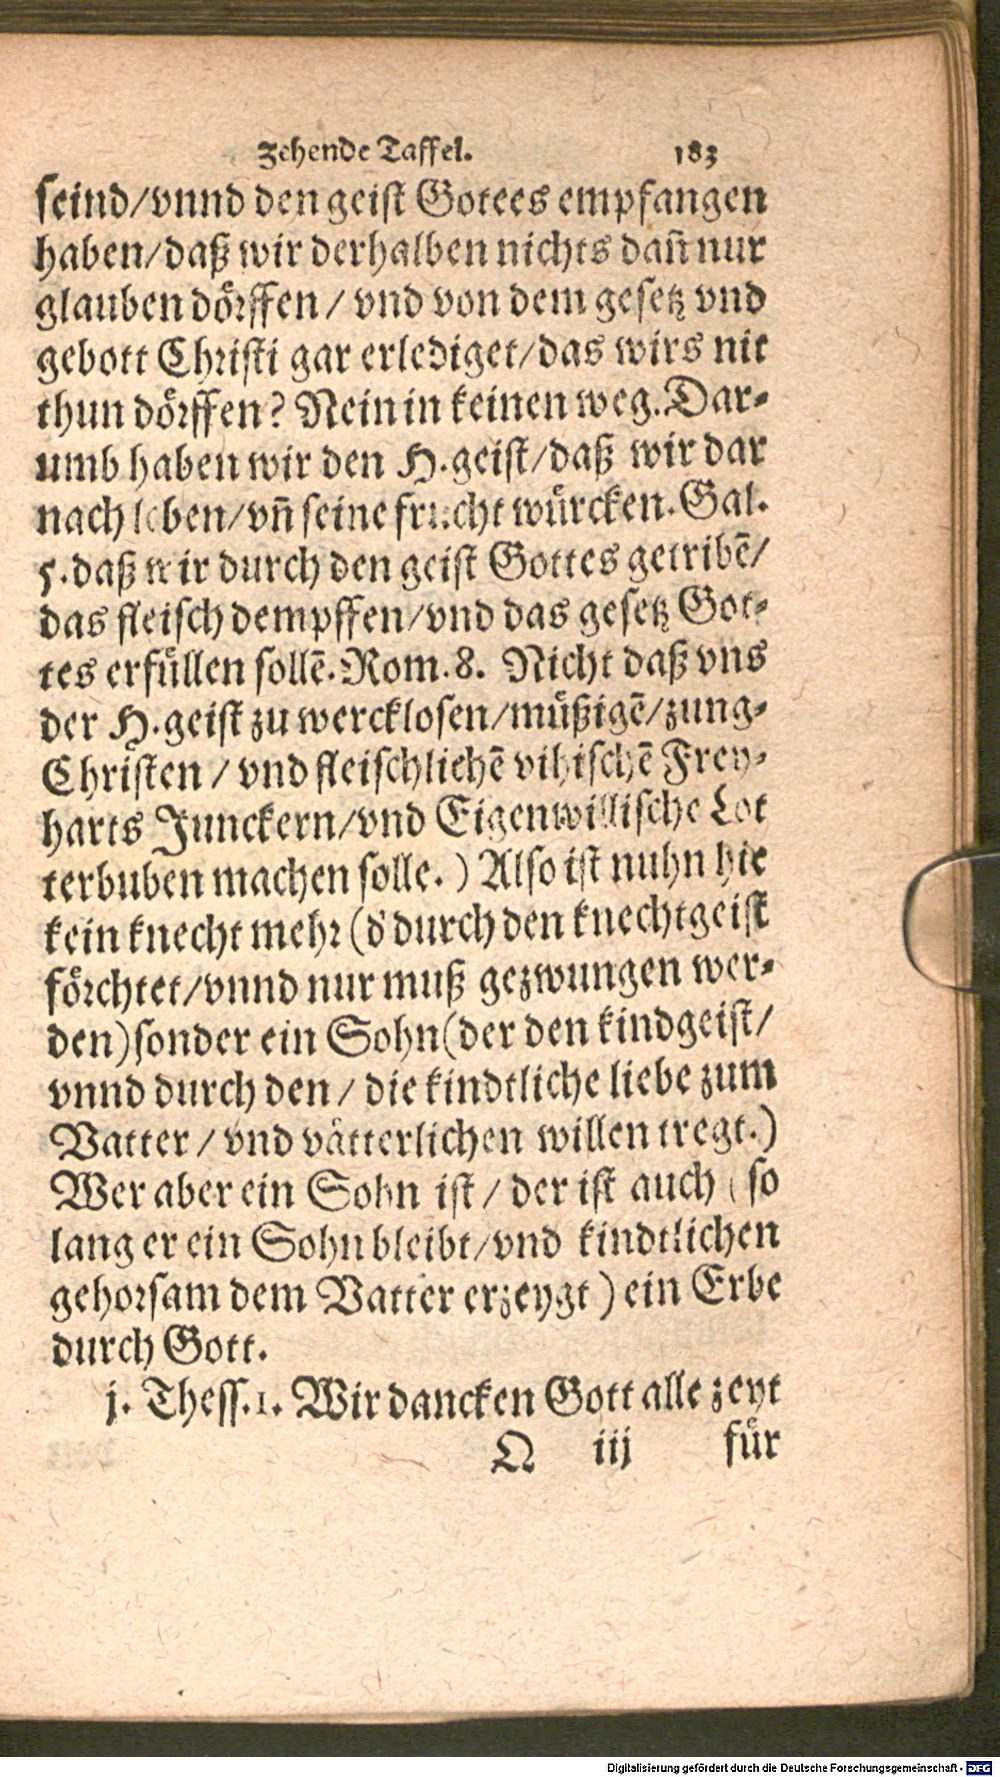 Zehende Taffel. 183
seind/vnnd den geist Gotees empfangen
haben/daß wir derhalben nichts dañ nur
glauben dörffen / vnd von dem gesetz vnd
gebott Christi gar erlediget/das wirs nit
thun dörffen? Nein in keinen weg. Dar-
umb haben wir den H. geist/daß wir dar
nach leben/vñ seine frucht würcken. Gal.
5. daß wir durch den geist Gottes getribē/
das fleisch dempffen/vnd das gesetz Got-
tes erfüllen sollē. Rom. 8. Nicht daß vns
der H. geist zu wercklosen/müßigē/zung-
Christen / vnd fleischlichē vihischē Frey-
harts Junckern/vnd Eigenwillische Lot
terbuben machen solle. ) Also ist nuhn hie
kein knecht mehr (d' durch den knechtgeist
förchtet/vnnd nur muß gezwungen wer-
den) sonder ein Sohn (der den kindgeist/
vnnd durch den / die kindtliche liebe zum
Vatter / vnd vätterlichen willen tregt.)
Wer aber ein Sohn ist / der ist auch ( so
lang er ein Sohn bleibt/vnd kindtlichen
gehorsam dem Vatter erzeygt ) ein Erbe
durch Gott.
j. Thess. 1. Wir dancken Gott alle zeyt
Q iij für
Digitalisierung gefördert durch die Deutsche Forschungsgemeinschaft - DFG